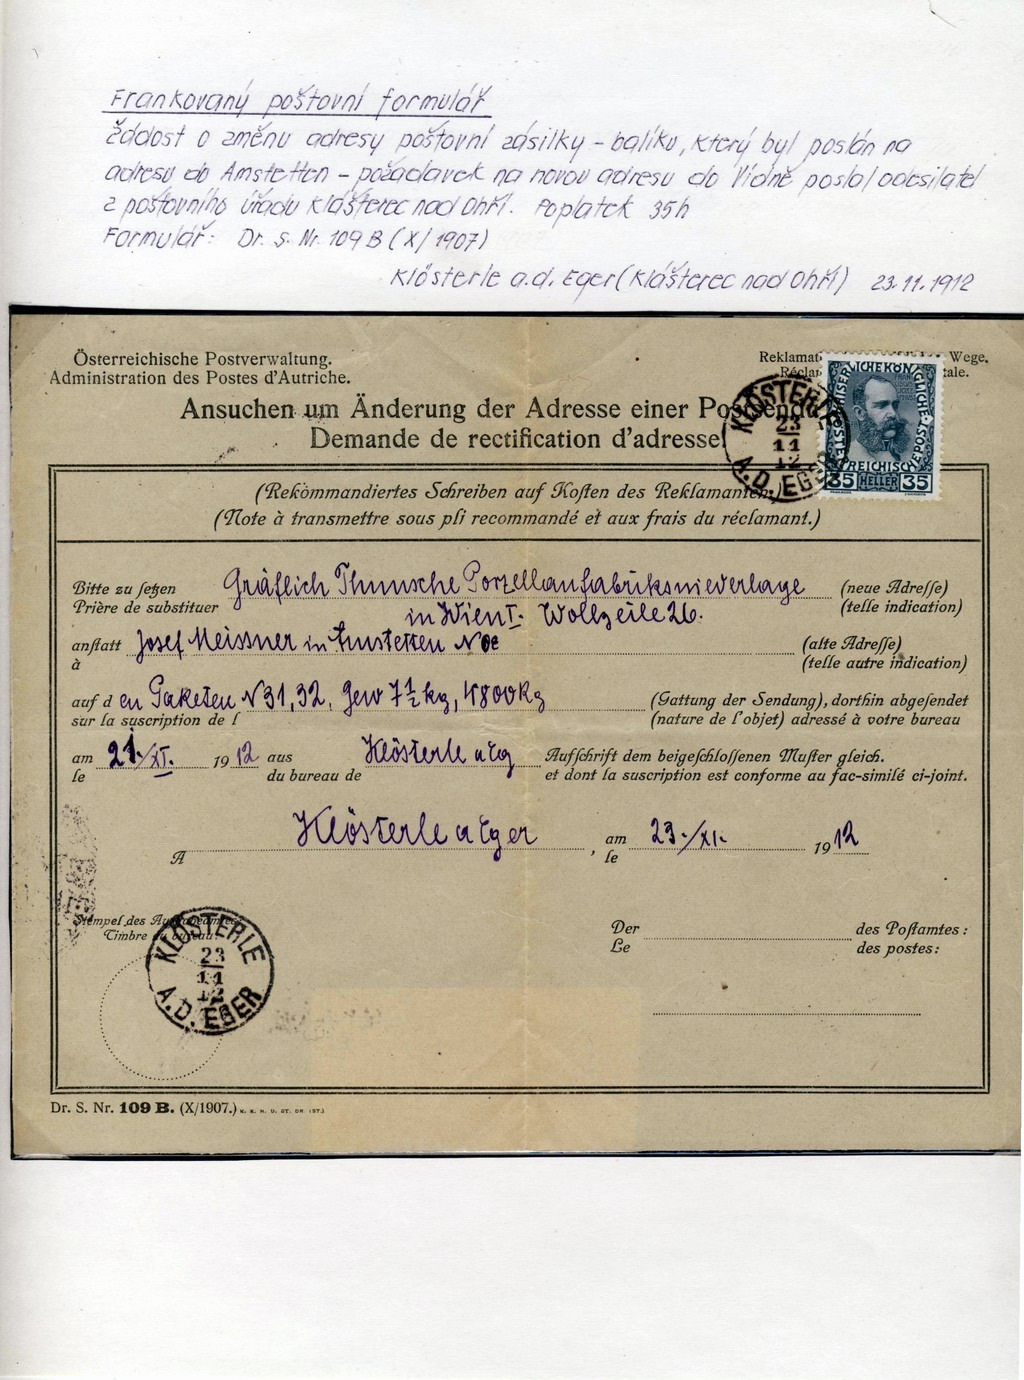 Frankovaný poštovní formulář
Žádost o změnu adresy poštovní zásilky – balíku, který byl poslán na
adresu do Amstetten – požadavek na novou adresu do Vídně poslal odesilatel
z poštovního úřadu Klášterec nad Ohří. Poplatek 35h
Formulář: Dr. S. Nr. 109 B (X/1907)
Klösterle a.d. Eger (Klášterec nad Ohří) 23.11.1912
Österreichische Postverwaltung.
Administration des Postes d'Autriche.
Wege.
Ansuchen um Änderung der Adresse einer
Demande de rectification d'adresse
KLÖSTERLE
23
11
12
A.D. EGER
KAISERLICHE KÖNIGLICHE
POST
35 HELLER 35
(Rekommandiertes Schreiben auf Kosten des Reklamanten.)
(Note à transmettre sous pli recommandé et aux frais du réclamant.)
Bitte zu setzen Gräflich Thunsche Porzellanfabriksniederlage (neue Adresse)
Prière de substituer in Wien I. Wollzeile 26. (telle indication)
anstatt Josef Meissner in Amstetten NOe (alte Adresse)
à (telle autre indication)
auf d en Paketen N 31, 32, Gew 7½ kg, 4800 kg (Gattung der Sendung), dorthin abgesendet
sur la suscription de l (nature de l'objet) adressé à votre bureau
am 21./XI. 1912 aus Klösterle a Eg Aufschrift dem beigeschlossenen Muster gleich.
le du bureau de et dont la suscription est conforme au fac-similé ci-joint.
A Klösterle a Eger, am 23./XI. 1912
le
Stempel des
Timbre du bureau
KLÖSTERLE
23
11
12
A.D. EGER
Der des Postamtes:
Le des postes:
Dr. S. Nr. 109 B. (X/1907.)